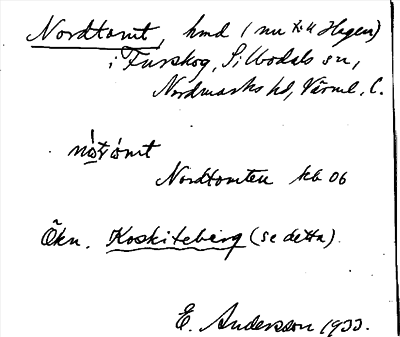 Nordtomt, hmd (nu t. Hagen)
i Furskog, Silbodals sn,
Nordmarks hd, Värml. l.
Nordtomten kb 06
Ökn. Koskiteberg (se detta).
E. Andersson 1933.